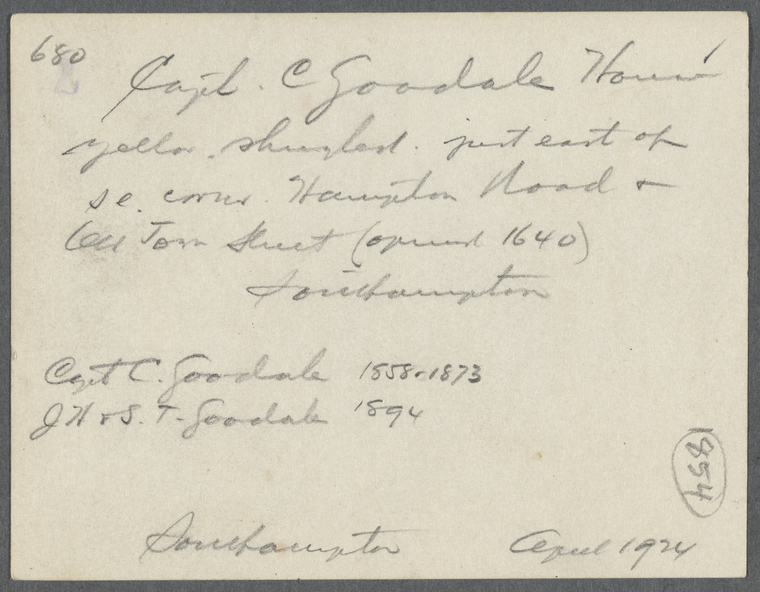 680
Capt. C Goodale House
yellow. shingled. just east of
se. corner. Hampton Road +
Old Town Street (opened 1640)
Southampton
Capt C. Goodale 1858-1873
J H & S. T. Goodale 1894
854
Southampton April 1924